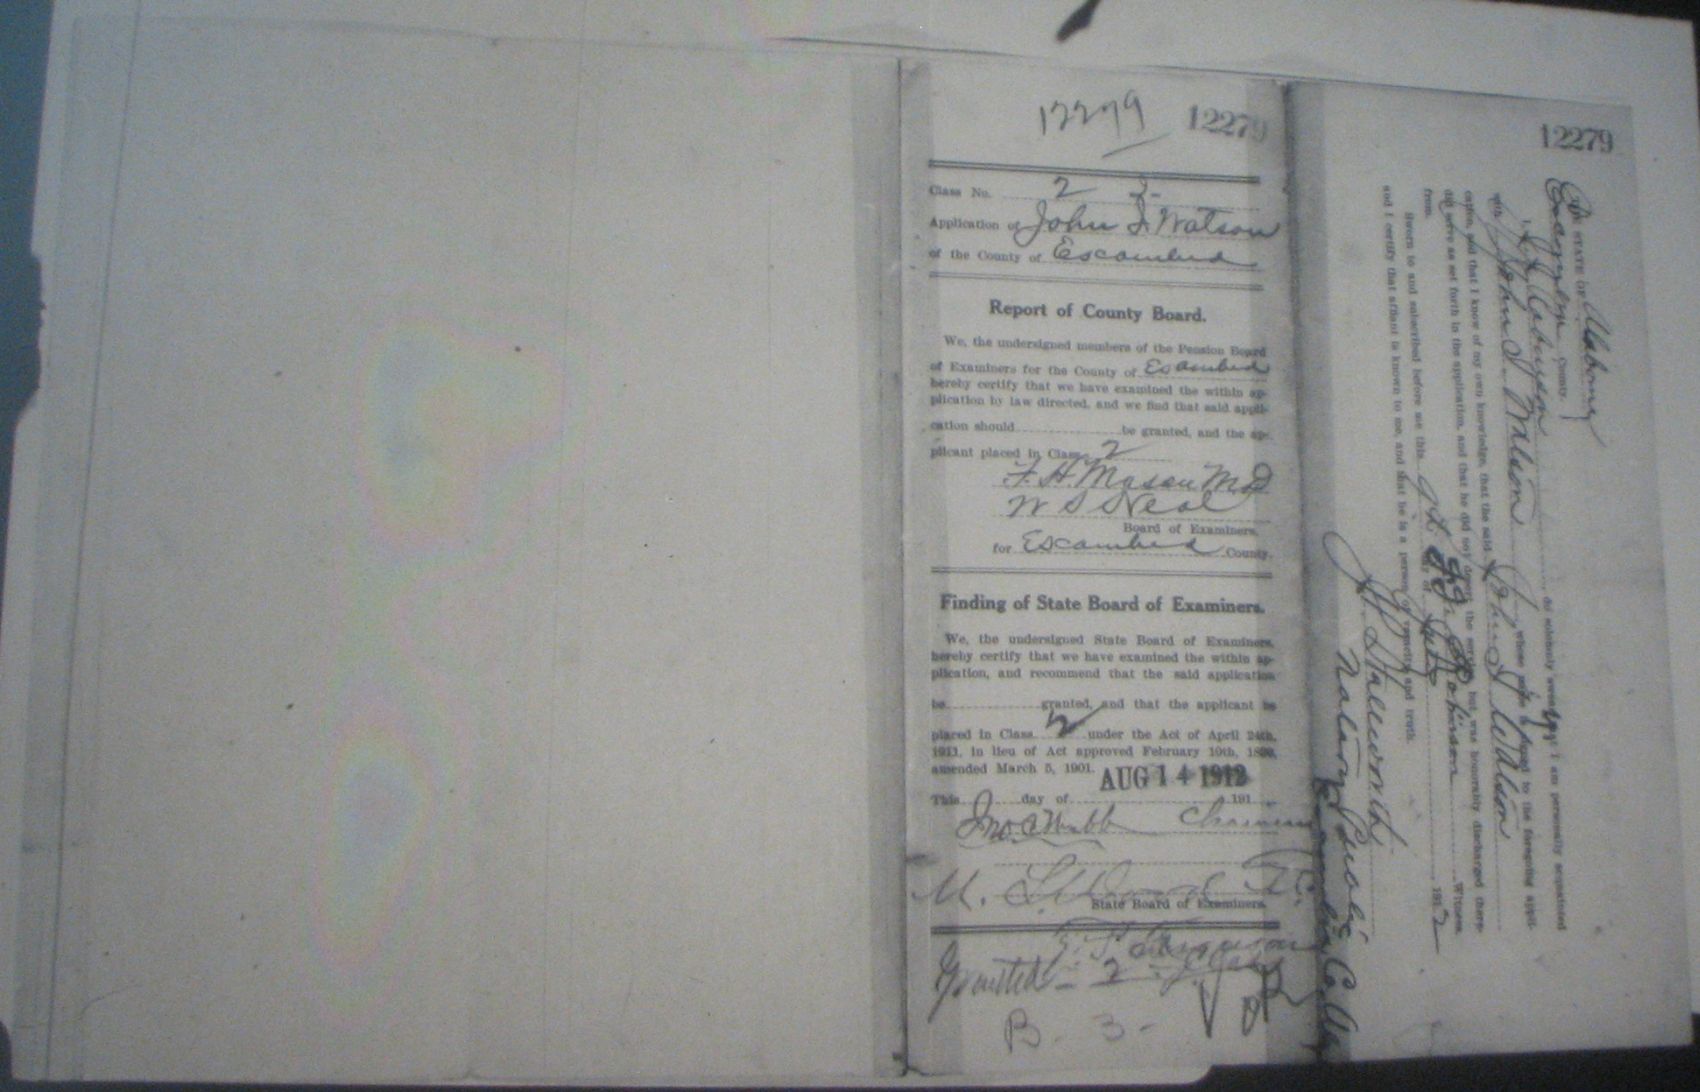 12279 12279
Class No. 2 3-
Application of John S. Watson
of the County of Escambia
Report of County Board.
We, the undersigned members of the Pension Board
of Examiners for the County of Escambia
hereby certify that we have examined the within ap-
plication by law directed, and we find that said appli-
cation should be granted, and the ap-
plicant placed in Class 2
F. H. Mason M D
W S Neal
Board of Examiners,
for Escambia County.
Finding of State Board of Examiners.
We, the undersigned State Board of Examiners,
hereby certify that we have examined the within ap-
plication, and recommend that the said application
be granted, and that the applicant be
placed in Class 2 under the Act of April 24th,
1911, in lieu of Act approved February 10th, 1899,
amended March 5, 1901.
AUG 14 1912
This day of 191
Jno. C Webb Chairman
M.
State Board of Examiners.
Granted - 2
B. 3-
12279
THE STATE OF Alabama
County.
I, do solemnly swear that I am personally acquainted
with John S. Watson whose name is signed to the foregoing appli-
cation, and that I know of my own knowledge, that the said John S Watson
did serve as set forth in the application, and that he did not desert the service but was honorably discharged there-
from. Robinson Witness.
Sworn to and subscribed before me this day of July 1912
and I certify that affiant is known to me, and that he is a person of veracity and truth.
Stallworth
Notary Public
Escambia Co Ala